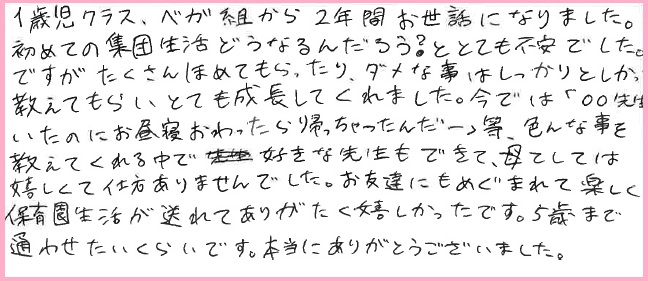 1歳児クラス、ベガ組から2年間お世話になりました。
初めての集団生活どうなるんだろう?ととても不安でした。
ですがたくさんほめてもらったり、ダメな事はしっかりとしかっ
教えてもらいとても成長してくれました。今では「〇〇先生
いたのにお昼寝おわったら帰っちゃったんだー」等、色んな事を
教えてくれる中で 好きな先生もできて、母としては
嬉しくて仕方ありませんでした。お友達にもめぐまれて楽しく
保育園生活が送れてありがたく嬉しかったです。5歳まで
通わせたいくらいです。本当にありがとうございました。